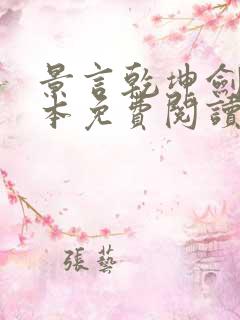 景言乾坤劍
本免費閱讀
張藝